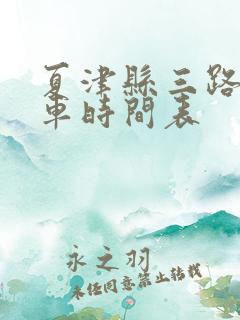 夏津縣三路
車時間表
永之羽
未經同意禁止轉載